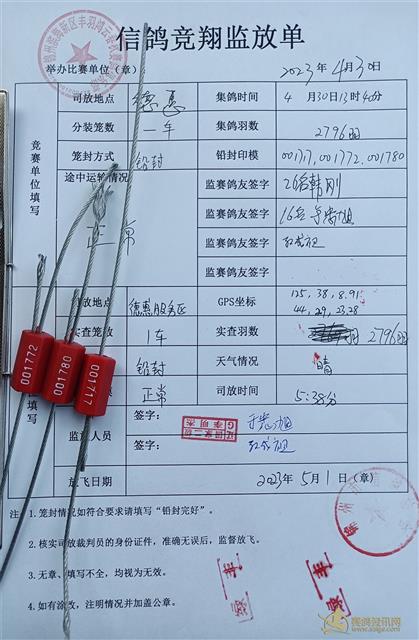 信鸽竞翔监放单
举办比赛单位(章): 2023年4月30日
竞赛单位填写
司放地点 德惠 集鸽时间 4月30日13时40分
分装笼数 一车 集鸽羽数 2796羽
笼封方式 铅封 铅封印模 001717,001772.001780
途中运输情况 正常 监赛鸽友签字
监赛鸽友签字
监赛鸽友签字
监赛鸽友签字
放地点 德惠服务区 GPS坐标 125,38,8.91
44,29,23.28
实查笼数 1车 实查羽数 2796羽
铅封 天气情况 晴
正常 司放时间 5:38分
填写
监放人员 签字:
签字:
放飞日期 2023年5月1日(章)
001772
001780
001717
注:1.笼封情况如符合要求请填写“铅封完好”。
2.核实司放裁判员的身份证件,准确无误后,监督放飞。
3.无章、填写不全,均视为无效。
4.如有涂改,注明情况并加盖公章。